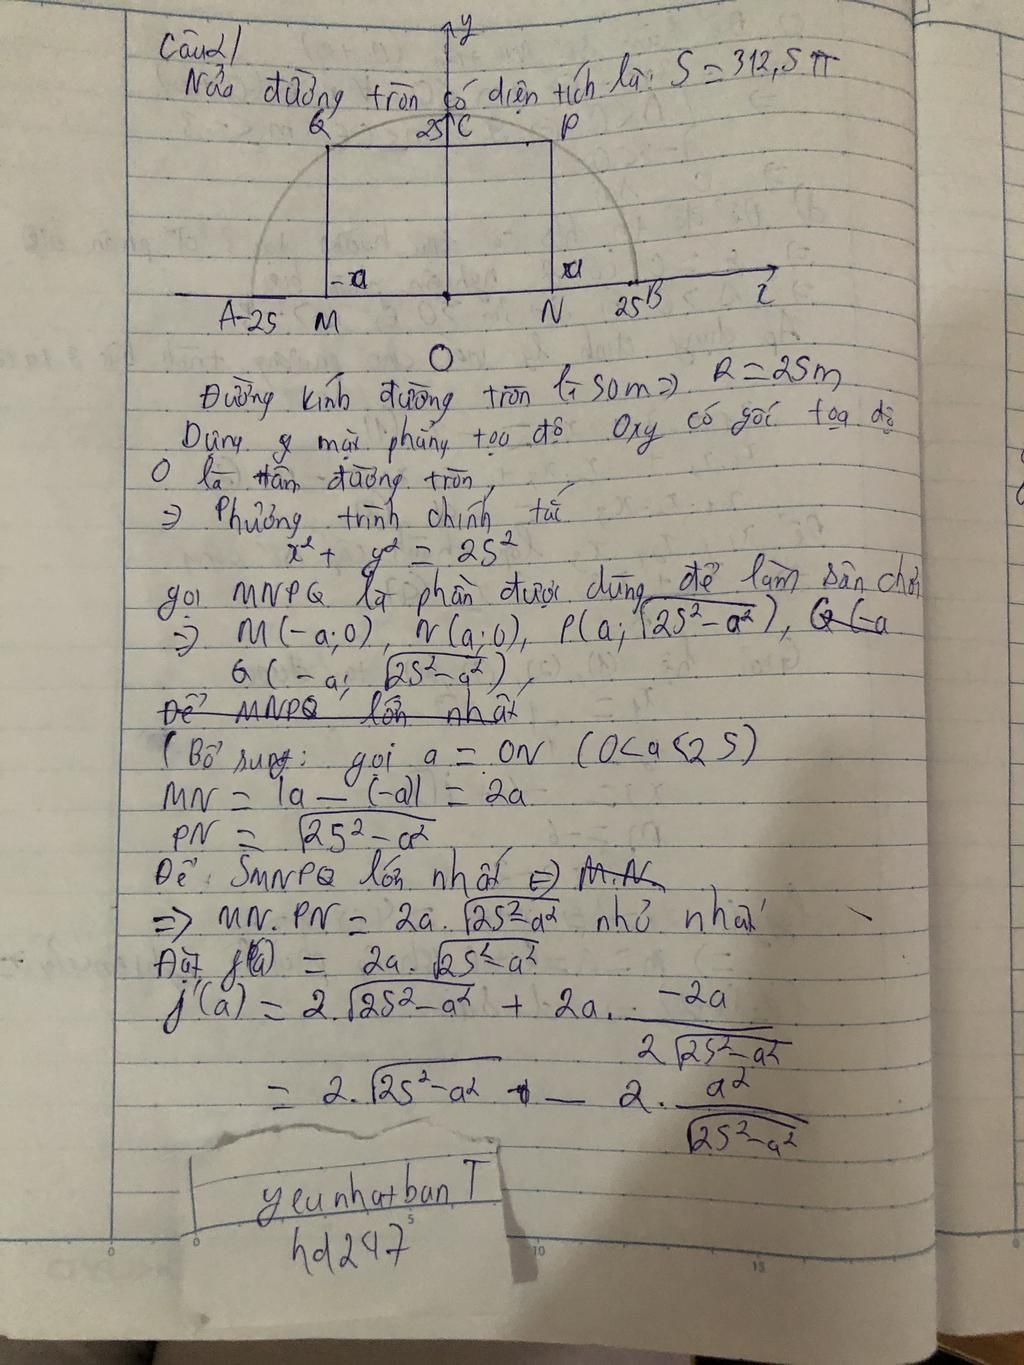 Câu 2/
Nửa đường tròn có diện tích là: S = 312,5 π
y
Q 25 C P
-a a
A -25 M N 25 B x
O
Đường kính đường tròn là 50m => R = 25m
Dựng mặt phẳng tọa độ Oxy có gốc tọa độ
O là tâm đường tròn,
=> Phương trình chính tắc
x² + y² = 25²
gọi MNPQ là phần được dùng để làm sân chơi
=> M(-a; 0), N(a; 0), P(a; √25² - a²), Q(-a
Q(-a; √25² - a²),
Để MNPQ lớn nhất
(Bổ sung: gọi a = ON (0 < a < 25)
MN = |a - (-a)| = 2a
PN = √25² - a²
Để SMNPQ lớn nhất <=> M.N
=> MN.PN = 2a.√25² - a² nhỏ nhất
Đặt f(a) = 2a.√25² - a²
f'(a) = 2.√25² - a² + 2a. -2a
2√25² - a²
= 2.√25² - a² - 2. a²
√25² - a²
yeunhatban T
hd247
0 0 5 10 15 0